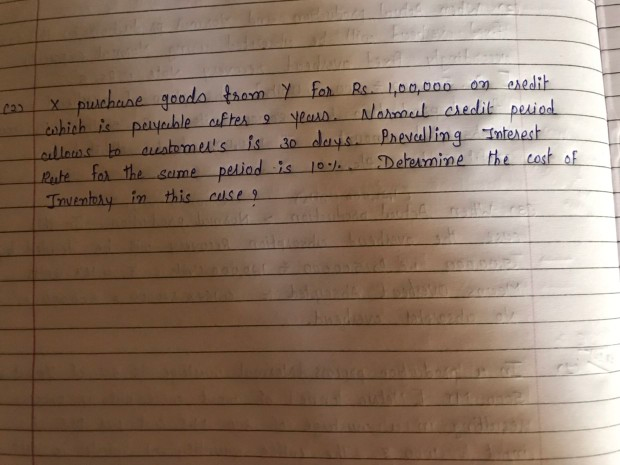 (2) X purchase goods from Y for Rs. 1,00,000 on credit
which is payable after 2 years. Normal credit period
allows to customer's is 30 days. Prevalling Interest
Rate for the same period is 10%. Determine the cost of
Inventory in this case?